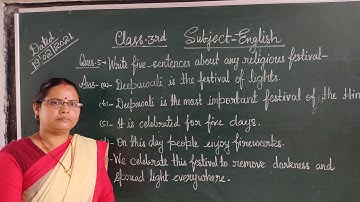 Dated
19/02/2021
Class-3rd Subject-English
Ques-5- Write five sentences about any religious festival-
Ans- (a)- Deepawali is the festival of lights.
(b)- Deepawali is the most important festival of the Hin
(c)- It is celebrated for five days.
)- On this day people enjoy fireworks.
)- We celebrate this festival to remove darkness and
spread light everywhere.